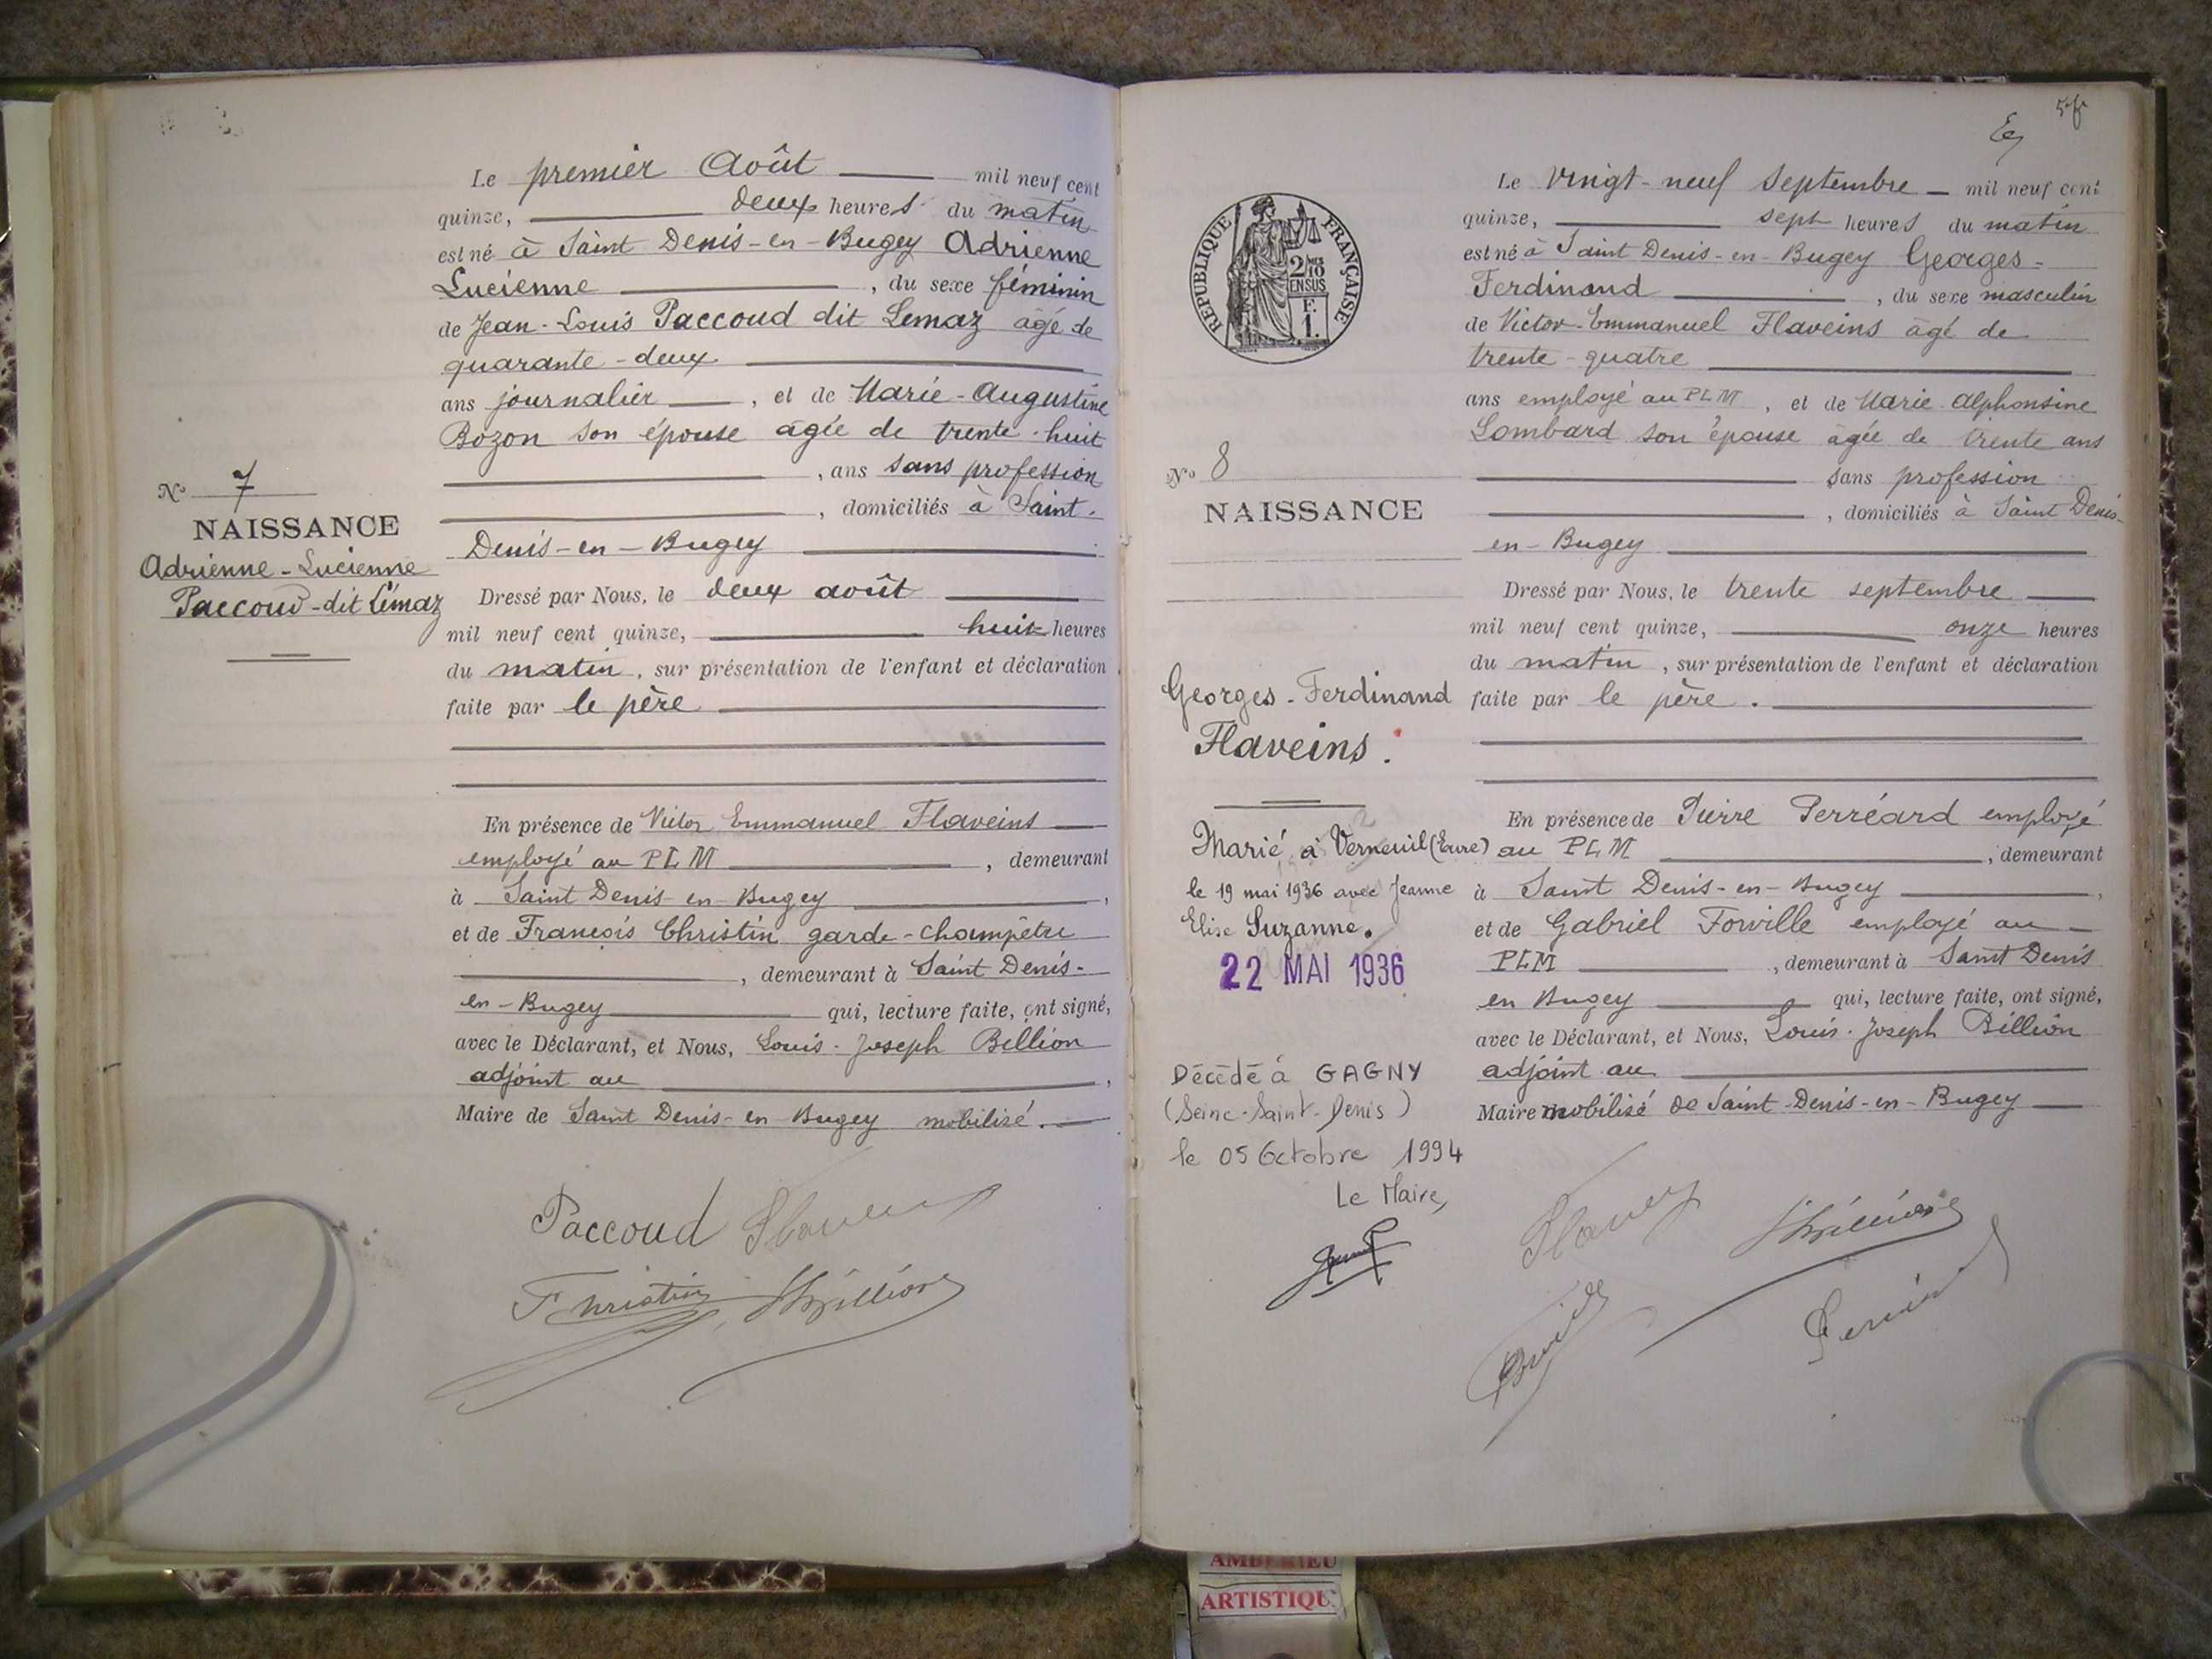 Le premier Août mil neuf cent
quinze, deux heures du matin
est né à Saint Denis-en-Bugey Adrienne
Lucienne , du sexe féminin
de Jean-Louis Paccoud dit Lemaz âgé de
quarante-deux
ans journalier , et de Marie-Augustine
Bozon son épouse agée de trente-huit
, ans sans profession
, domiciliés à Saint-
Denis-en-Bugey
Dressé par Nous, le deux août
mil neuf cent quinze, huit heures
du matin, sur présentation de l'enfant et déclaration
faite par le père
En présence de Victor Emmanuel Flaveins
employé au PLM , demeurant
à Saint Denis-en-Bugey ,
et de François Christin garde-champêtre
, demeurant à Saint Denis-
en-Bugey qui, lecture faite, ont signé,
avec le Déclarant, et Nous, Louis-Joseph Billion
adjoint au ,
Maire de Saint Denis-en-Bugey mobilisé.
N° 7
NAISSANCE
Adrienne-Lucienne
Paccoud-dit Lémaz
Paccoud
5
RÉPUBLIQUE FRANÇAISE
2/10 EN SUS
F.
1.
Le vingt-neuf Septembre mil neuf cent
quinze, sept heures du matin
est né à Saint Denis-en-Bugey Georges-
Ferdinand , du sexe masculin
de Victor-Emmanuel Flaveins âgé de
trente-quatre
ans employé au PLM , et de Marie Alphonsine
Lombard son épouse âgée de trente ans
sans profession
, domiciliés à Saint Denis-
en-Bugey
Dressé par Nous, le trente septembre
mil neuf cent quinze, onze heures
du matin , sur présentation de l'enfant et déclaration
faite par le père.
En présence de Pierre Perréard employé
au PLM , demeurant
à Saint Denis-en-Bugey ,
et de Gabriel employé au
PLM , demeurant à Saint Denis
en Bugey qui, lecture faite, ont signé,
avec le Déclarant, et Nous, Louis-Joseph Billion
adjoint au
Maire mobilisé de Saint-Denis-en-Bugey
N° 8
NAISSANCE
Georges-Ferdinand
Flaveins.
Marié à Verneuil (Eure)
le 19 mai 1936 avec Jeanne
Elise Suzanne.
22 MAI 1936
Décédé à GAGNY
(Seine-Saint-Denis)
le 05 Octobre 1994
Le Maire,
AMBERIEU
ARTISTIQU